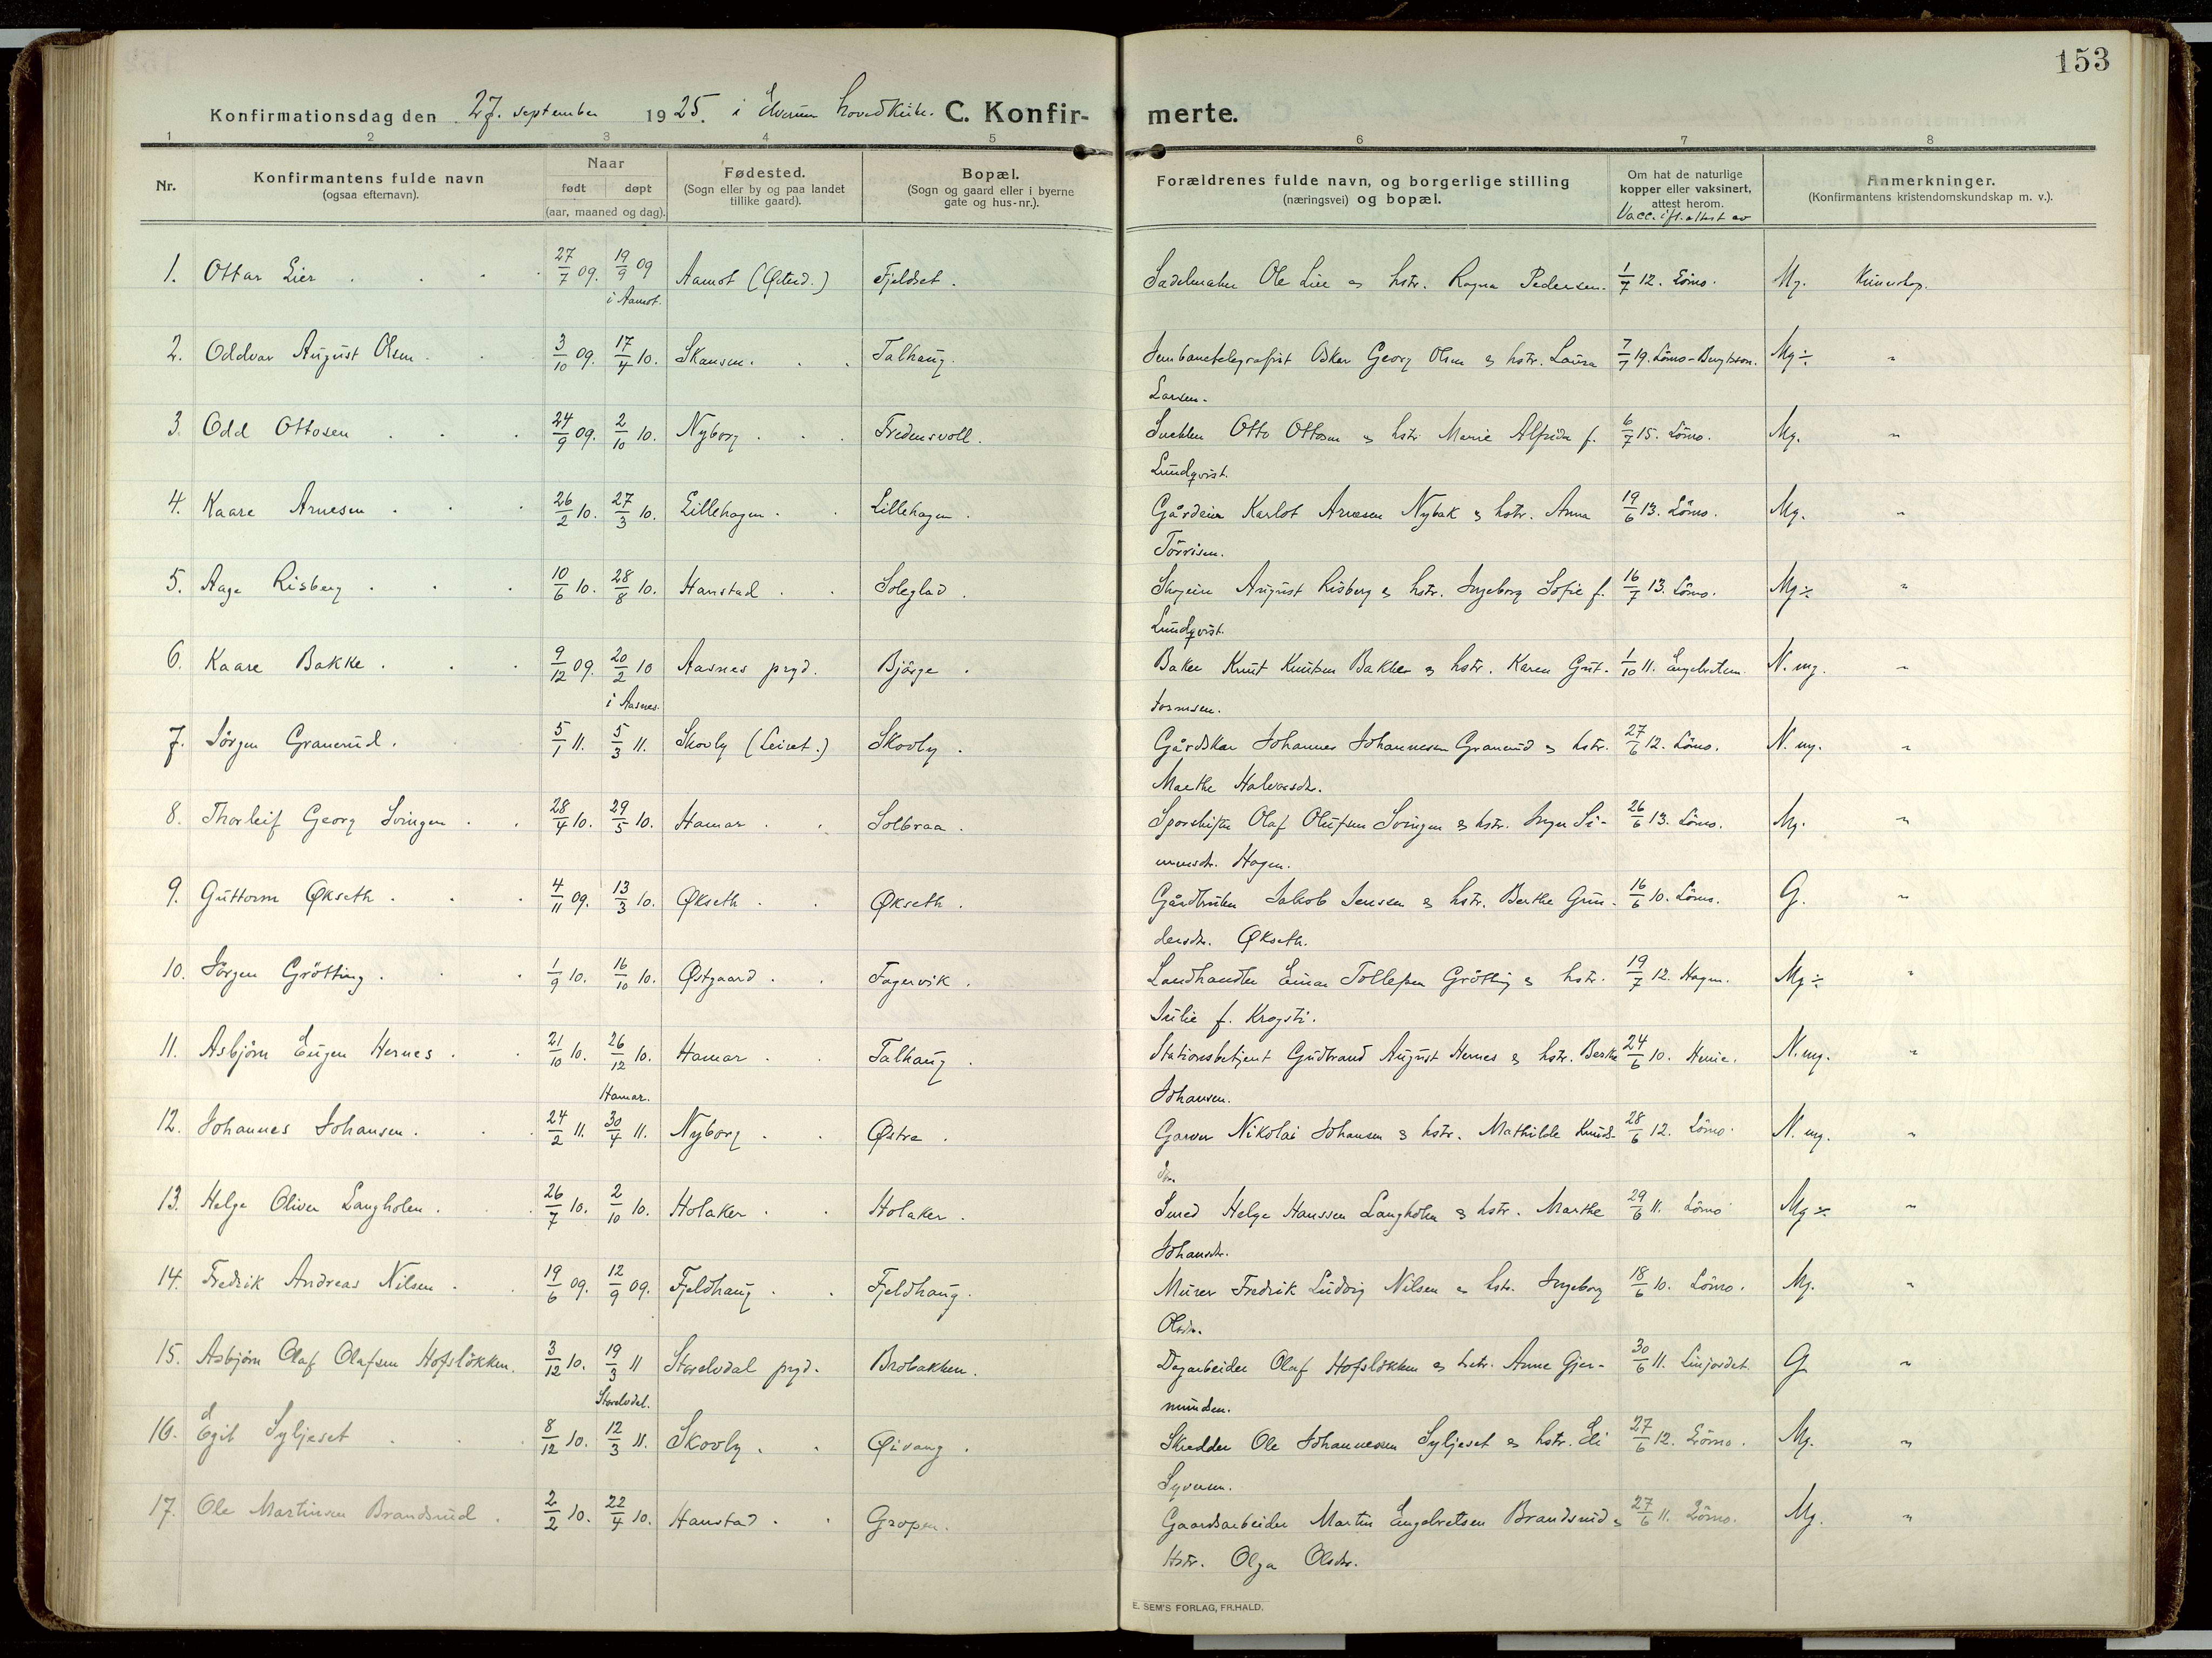 153
Konfirmationsdag den 27. september 1925. i Elverum hovedkirke. C. Konfir- merte.
1 2 3 4 5 6 7 8
Nr.
Konfirmantens fulde navn
(ogsaa efternavn).
Naar
født døpt
(aar, maaned og dag).
Fødested.
(Sogn eller by og paa landet
tillike gaard).
Bopæl.
(Sogn og gaard eller i byerne
gate og hus-nr.).
Forældrenes fulde navn, og borgerlige stilling
(næringsvei) og bopæl.
Om hat de naturlige
kopper eller vaksinert,
attest herom.
Vacc. ifl. attest av
Anmerkninger.
(Konfirmantens kristendomskundskap m. v.).
1. Ottar Lier 27/7 09. 19/9 09 Aamot (Østed.) Fjeldset. Sadelmaker Ole Lie og hstr. Ragna Pedersen. 1/7 12. Lömo. Mg. Kunnskap.
i Aamot.
2. Oddvar August Olsen. 3/10 09. 17/4 10. Skansen. Talhaug. Jernbanetelegrafist Oskar Georg Olsen og hstr. Laura 7/7 19. Lömo-Bengtsson. Mg÷ "
Larsen.
3. Odd Ottosen 24/9 09. 2/10 10. Nyborg. Fredensvoll. Snekker Otto Ottosen og hstr. Marie Alfrida f. 6/7 15. Lömo. Mg. "
Lundqvist.
4. Kaare Arnesen 26/2 10. 27/3 10. Lillehagen. Lillehagen. Gårdeier Karlot Arnesen Nybak og hstr. Anna 19/6 13. Lömo. Mg. "
Törrisen.
5. Aage Risberg 10/6 10. 28/8 10. Hanstad Soleglad. Skogeier August Risberg og hstr. Ingeborg Sofie f. 16/7 13. Lömo. Mg÷ "
Lundqvist.
6. Kaare Bakke. 9/12 09. 20/2 10 Aasnes prgd. Bjårge. Baker Knut Knutsen Bakke og hstr. Karen Gut- 1/10 11. Engebretsen. N. mg. "
i Aasnes. tormsen.
7. Jörgen Granerud. 5/1 11. 5/3 11. Skovly (Leiret.) Skovly. Gårdskar Johannes Johannesen Granerud og hstr. 27/6 12. Lömo. N. mg. "
Marthe Halvorsdr.
8. Thorleif Georg Svingen 28/4 10. 29/5 10. Hamar Solbraa. Sporskifter Olaf Olufsen Svingen og hstr. Inger Si- 26/6 13. Lömo. Mg. "
mensdr. Hagen.
9. Guttorm Økseth 4/11 09. 13/3 10. Økseth Økseth. Gårdbruker Jakob Jensen og hstr. Berthe Gun- 16/6 10. Lömo. G. "
dersdr. Økseth.
10. Jörgen Grötting. 1/9 10. 16/10 10. Østgaard Fagervik. Landhandler Einar Tollefsen Grötting og hstr. 19/7 12. Hagen. Mg÷ "
Julie f. Krogsti.
11. Asbjörn Eugen Hernes. 21/10 10. 26/12 10. Hamar Talhaug. Stationsbetjent Gudbrand August Hernes og hstr. Berthe 24/6 10. Henie. N. mg. "
Hamar. Johansen.
12. Johannes Johansen. 24/2 11. 30/4 11. Nyborg Østre. Garver Nikolai Johansen og hstr. Mathilde Knud- 28/6 12. Lömo. N. mg. "
sen.
13. Helge Oliver Langholen. 26/7 10. 2/10 10. Holaker Holaker. Smed Helge Hanssen Langholen og hstr. Marthe 29/6 11. Lömo Mg÷ "
Johansdr.
14. Fredrik Andreas Nilsen 19/6 09. 12/9 09. Fjeldhaug Fjeldhaug. Murer Fredrik Ludvig Nilsen og hstr. Ingeborg 18/6 10. Lömo. Mg. "
Olsdr.
15. Asbjörn Olaf Olafsen Hofslökken. 3/12 10. 19/3 11 Storelvdal prgd. Brobakken. Dagarbeider Olaf Hofslökken og hstr. Anne Gjer- 30/6 11. Linjordet. G "
Storelvdal. mundsen.
16. Egil Syljeset 8/12 10. 12/3 11. Skovly. Øivang. Skredder Ole Johannessen Syljeset og hstr. Eli 27/6 12. Lömo. Mg. "
Syversen.
17. Ole Martinsen Brandsrud. 2/2 10. 22/4 10. Hanstad Gropen. Gaardsarbeider Martin Engebretsen Brandsrud og 27/6 11. Lömo. Mg. "
Hstr. Olga Olsdr.
E. SEM'S FORLAG, FR.HALD.